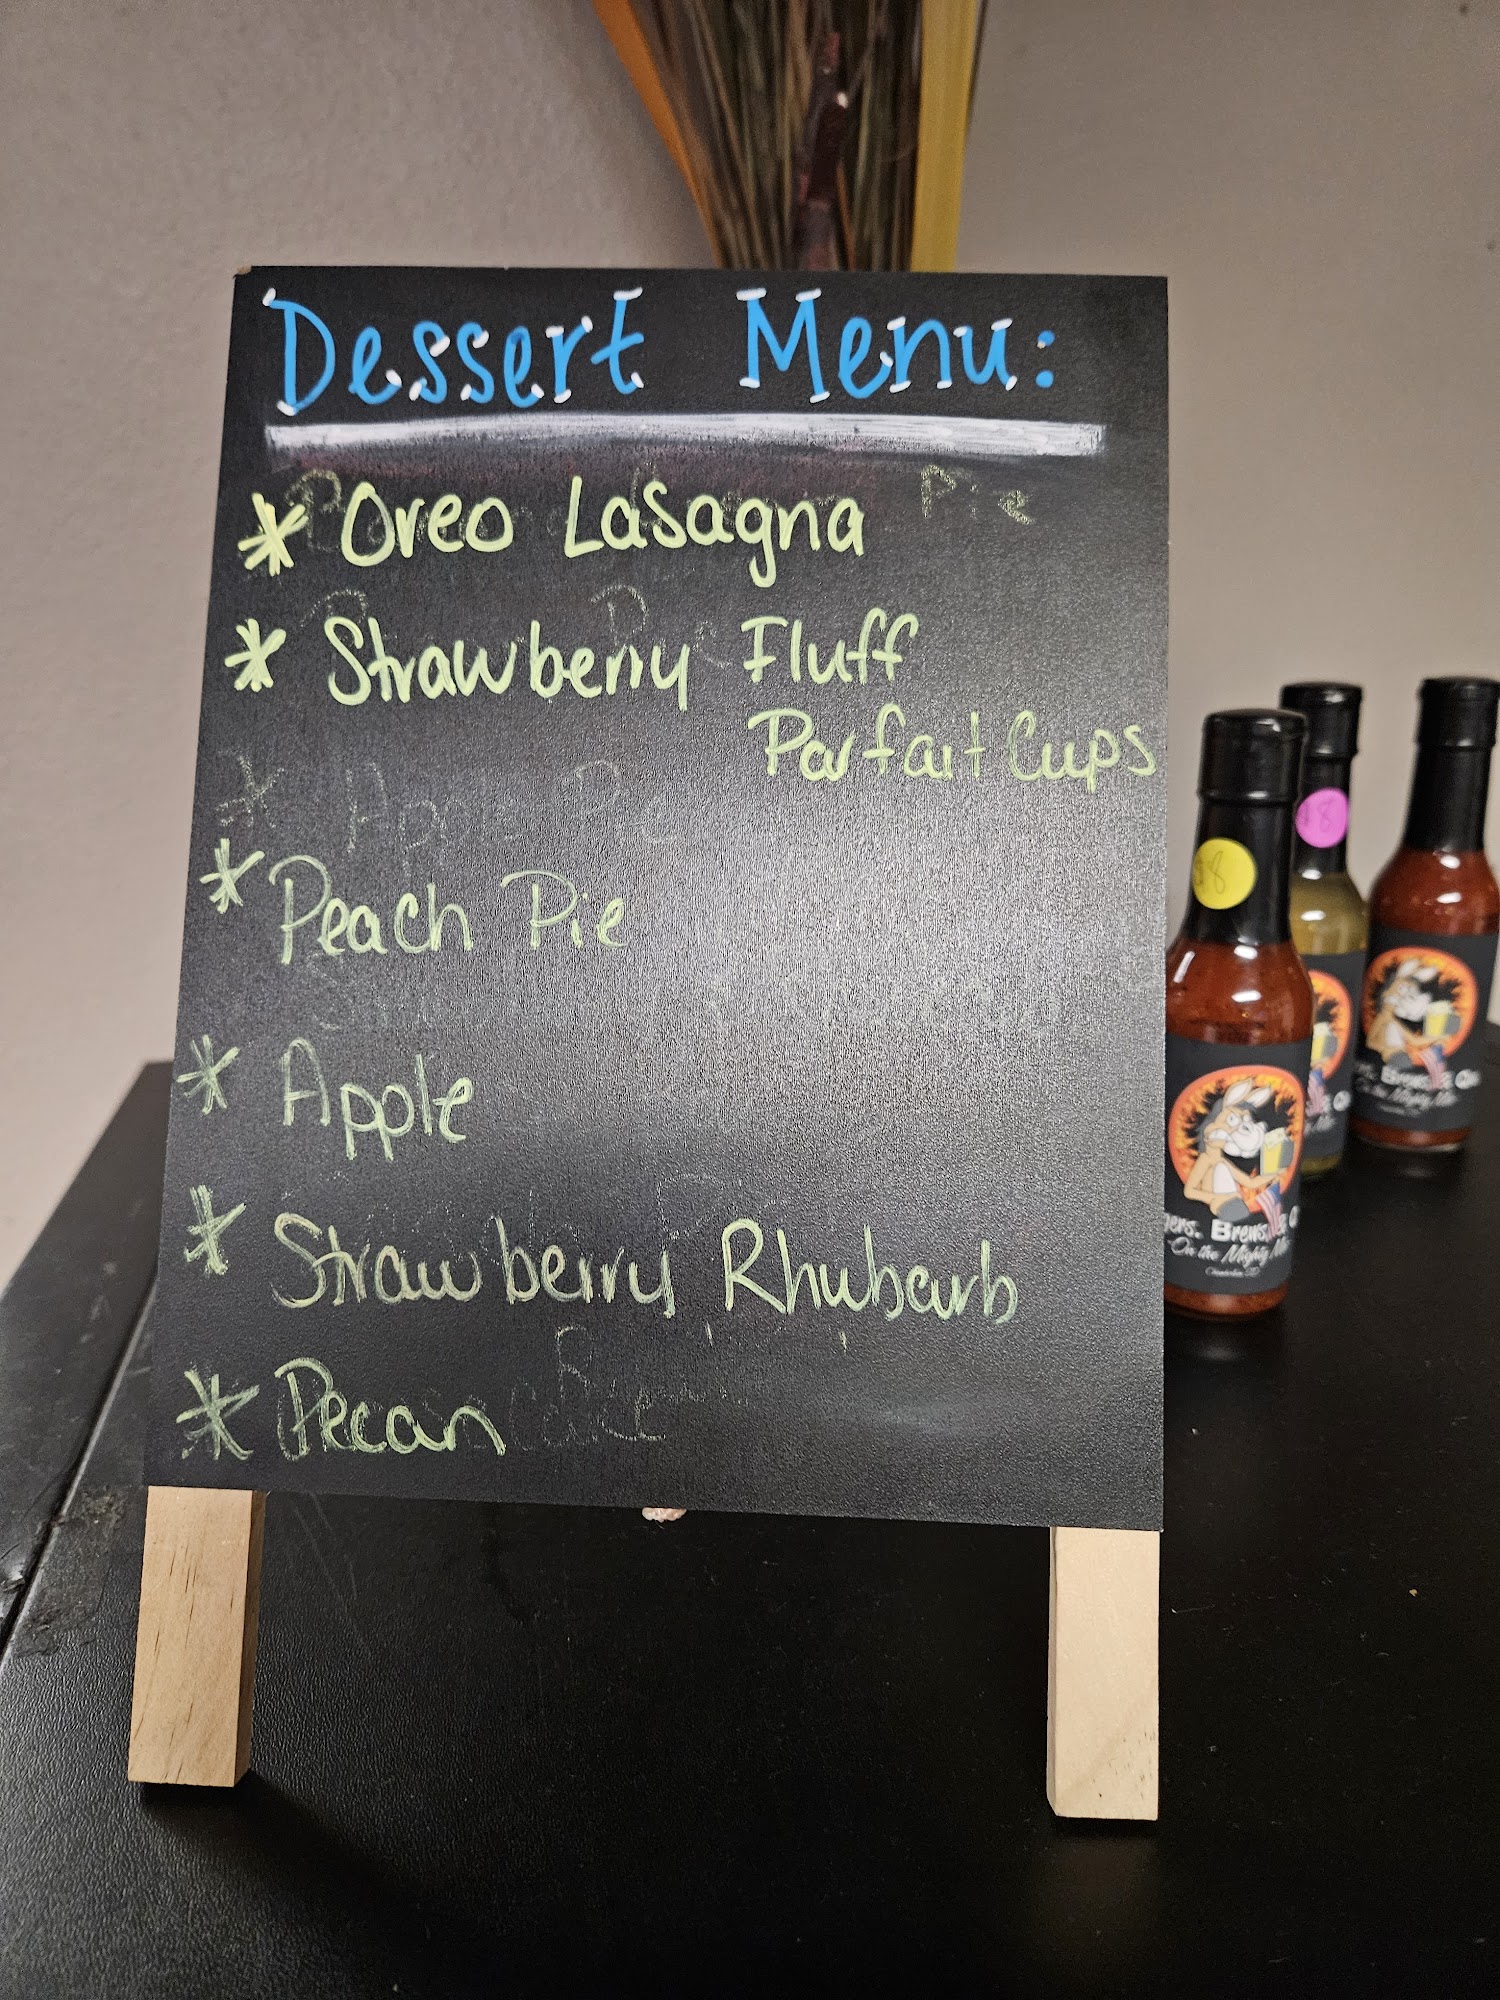 Dessert Menu:
* Oreo Lasagna Pie
* Strawberry Fluff
Parfait Cups
* Apple Pie
* Peach Pie
* Apple
* Strawberry Rhubarb
* Pecan
$8
$8
Brews, &
On the Mighty Mo
Brews, &
On the Mighty Mo